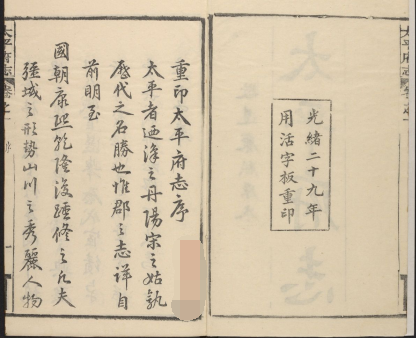 光緒二十九年
用活字板重印
重印太平府志序
太平者迺漢之丹陽宋之姑孰
歷代之名勝也惟郡之志詳自
前明至
國朝康熙乾隆後踵修之凡夫
疆域之形勢山川之秀麗人物
太平府志